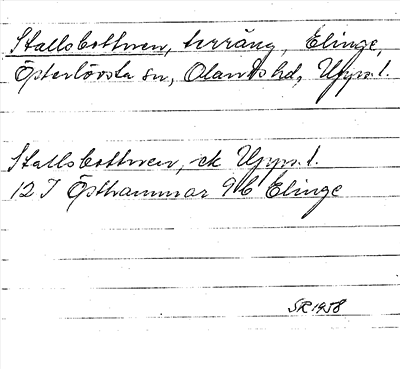 Stallsbottnen, terräng, Elinge,
Österlövsta sn, Olands hd, Upps. l.
Stallsbottnen, ek Upps. l.
12 I Östhammar 9b Elinge
SR 1958